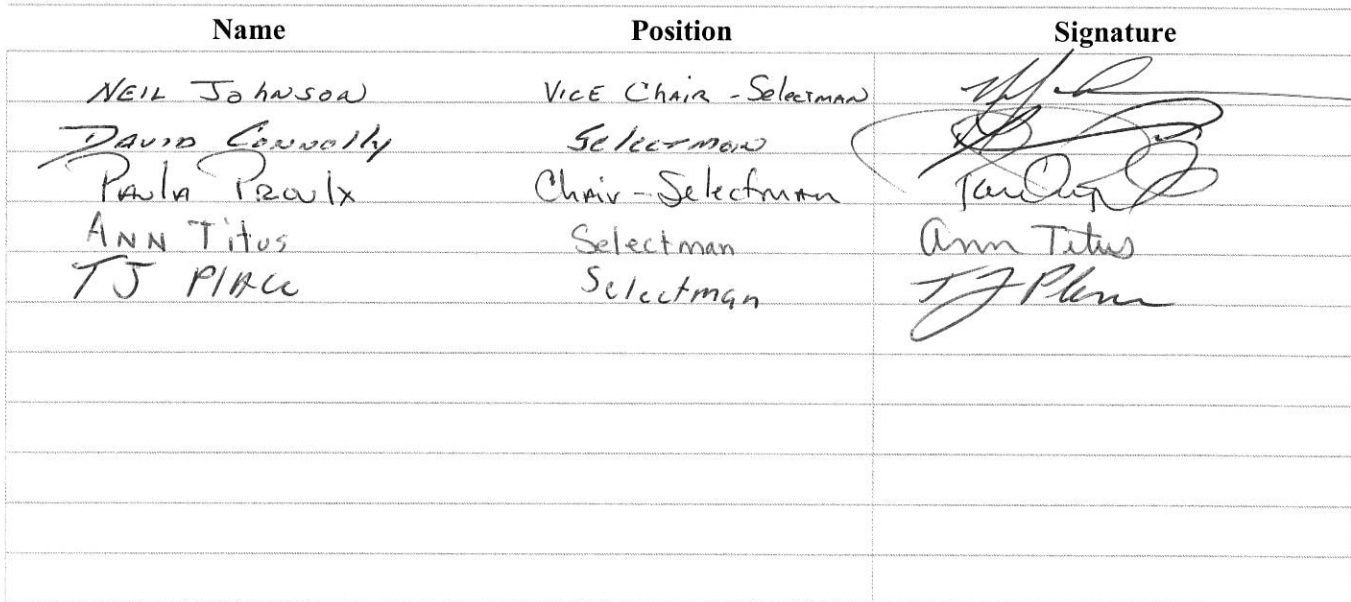 Name Position Signature
NEIL JOHNSON VICE CHAIR - Selectman
DAVID CONNOLLY Selectman
PAULA PROULX Chair - Selectman
ANN Titus Selectman Ann Titus
TJ PLACE Selectman TJ